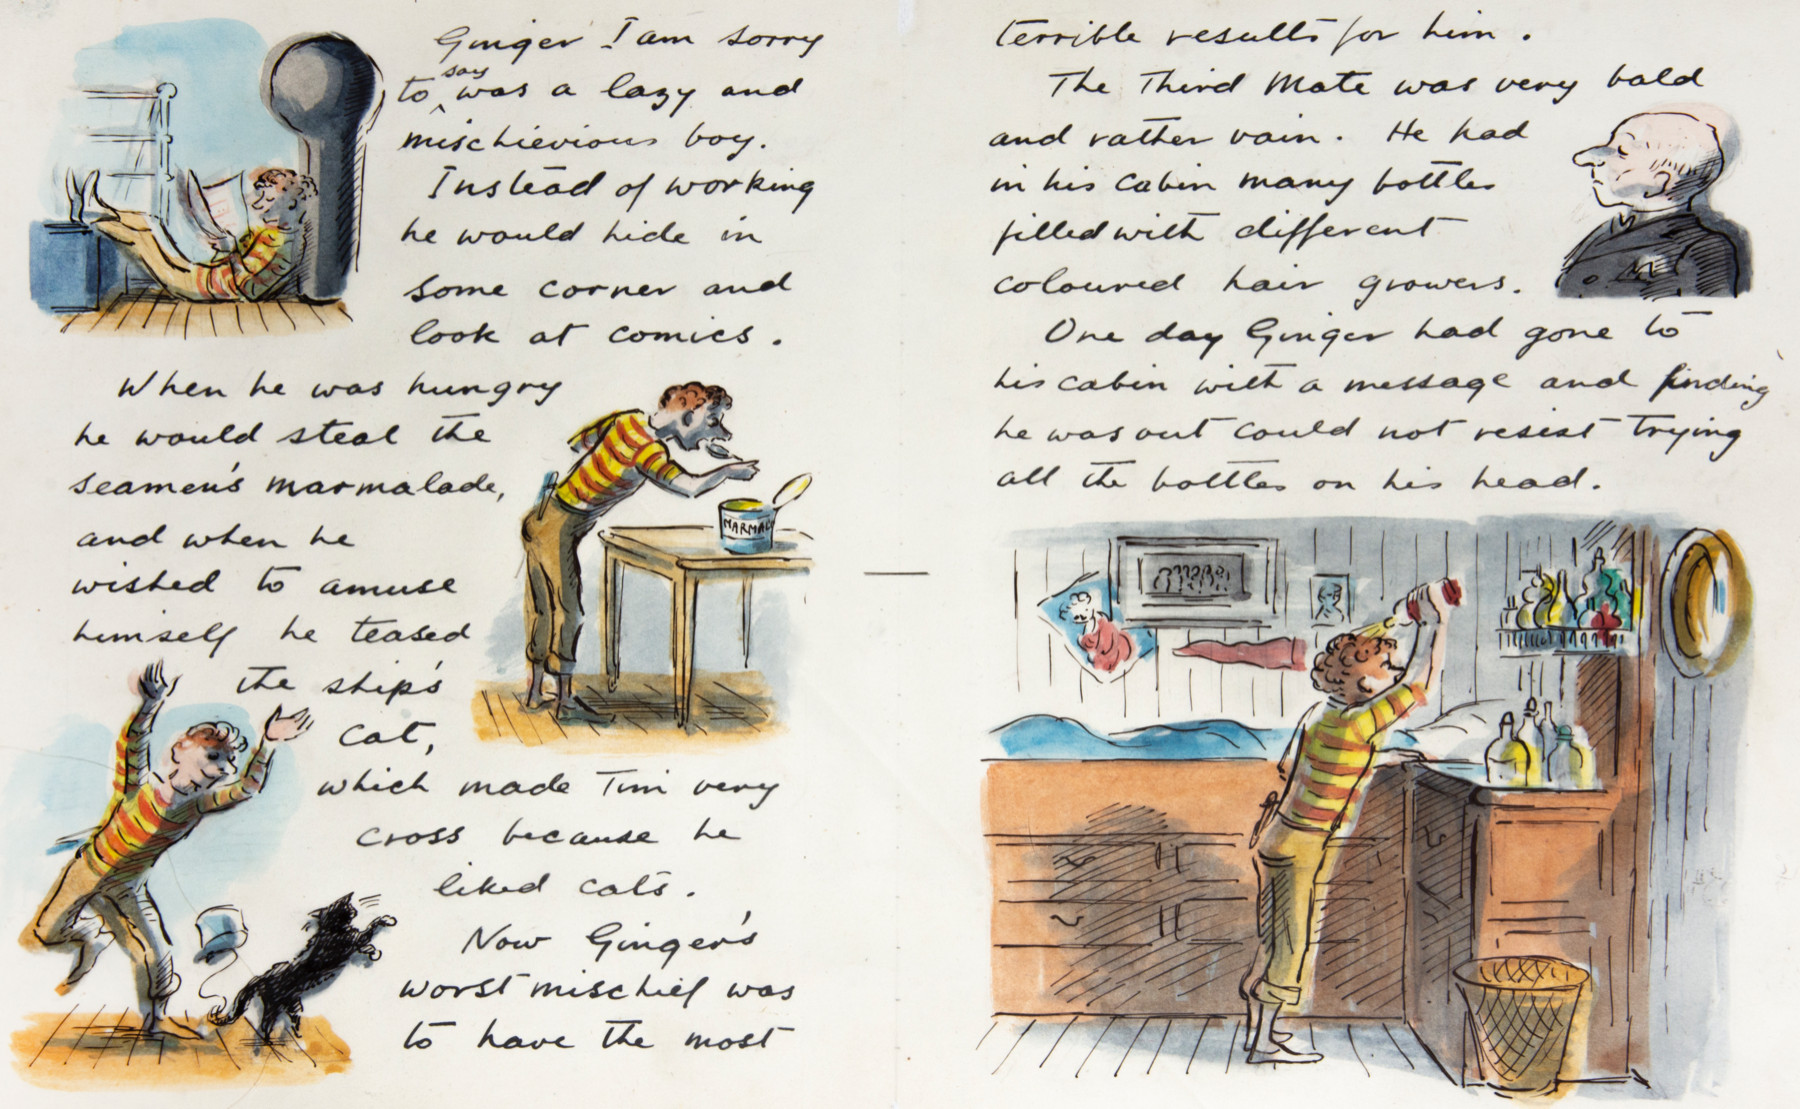 Ginger I am sorry
to say was a lazy and
mischievious boy.
Instead of working
he would hide in
some corner and
look at comics.
When he was hungry
he would steal the
seamen's marmalade,
and when he
wished to amuse
himself he teased
the ship's
cat,
which made Tim very
cross because he
liked cats.
Now Ginger's
worst mischief was
to have the most
MARMAL
terrible results for him.
The Third Mate was very bald
and rather vain. He had
in his cabin many bottles
filled with different
coloured hair growers.
One day Ginger had gone to
his cabin with a message and finding
he was out could not resist trying
all the bottles on his head.